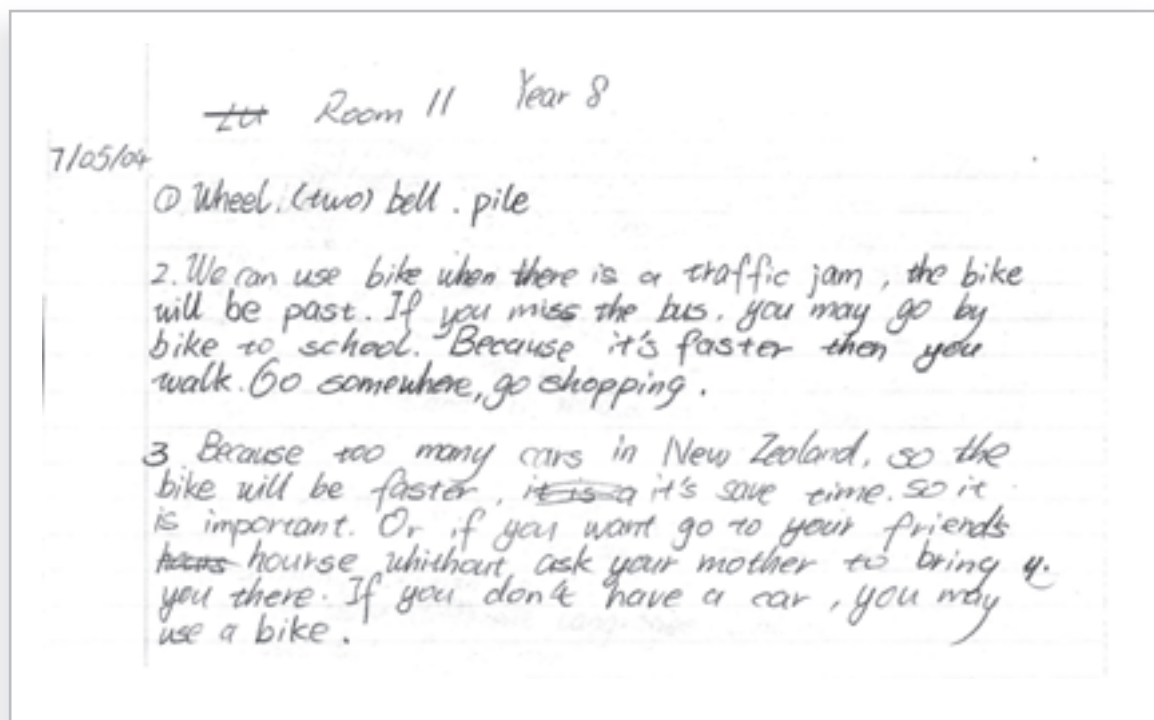 Lu Room 11 Year 8
7/05/04
① Wheel. (two) bell. pile
2. We can use bike when there is a traffic jam, the bike
will be past. If you miss the bus. you may go by
bike to school. Because it's faster then you
walk. Go somewhere, go shopping.
3 Because too many cars in New Zealand, so the
bike will be faster, it is a it's save time. So it
is important. Or if you want go to your friends
hours hourse whithout ask your mother to bring y.
you there. If you don't have a car, you may
use a bike.